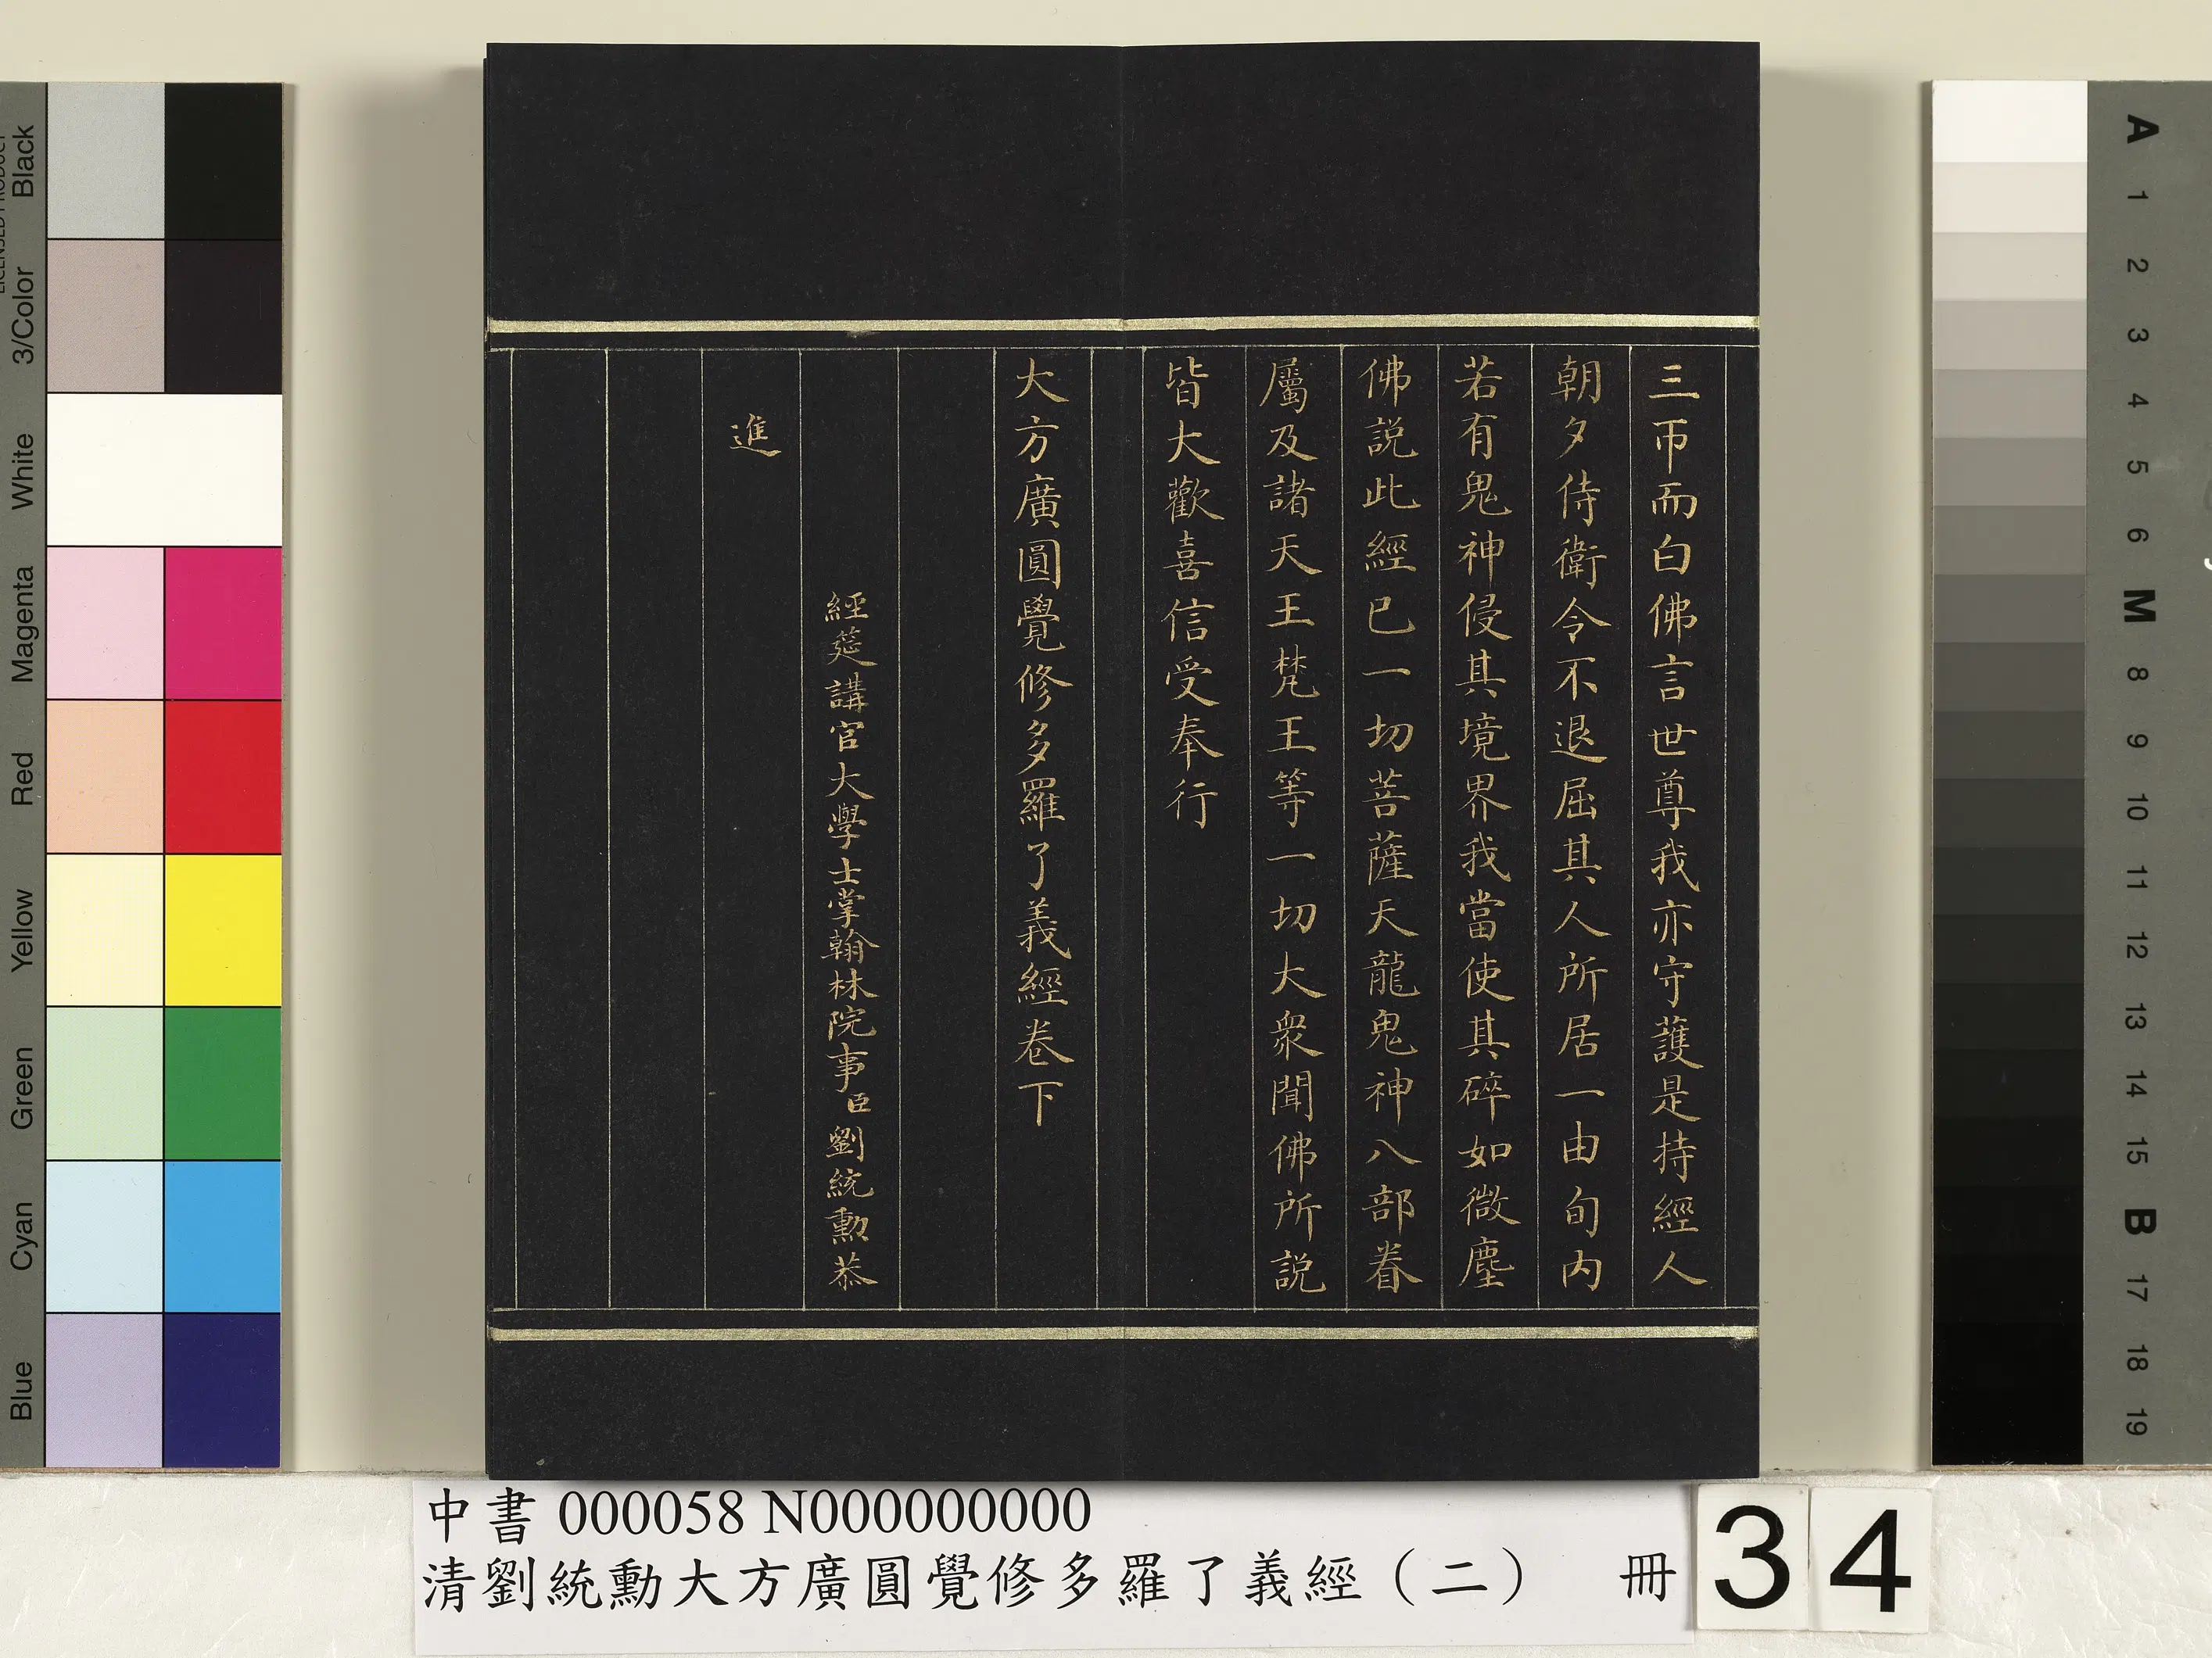 三帀而白佛言世尊我亦守護是持經人
朝夕侍衛令不退屈其人所居一由旬內
若有鬼神侵其境界我當使其碎如微塵
佛説此經已一切菩薩天龍鬼神八部眷
屬及諸天王梵王等一切大衆聞佛所説
皆大歡喜信受奉行
大方廣圓覺修多羅了義經卷下
經筵講官大學士掌翰林院事臣劉統勳恭
進
Black
3/Color
White
Magenta
Red
Yellow
Green
Cyan
Blue
A
1
2
3
4
5
6
M
8
9
10
11
12
13
14
15
B
17
18
19
中書 000058 N000000000
清劉統勳大方廣圓覺修多羅了義經（二） 冊
34